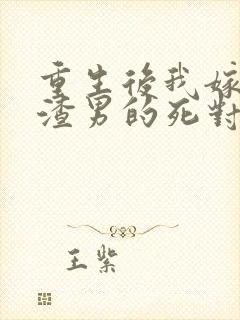 重生後我嫁
渣男的死對
王紫